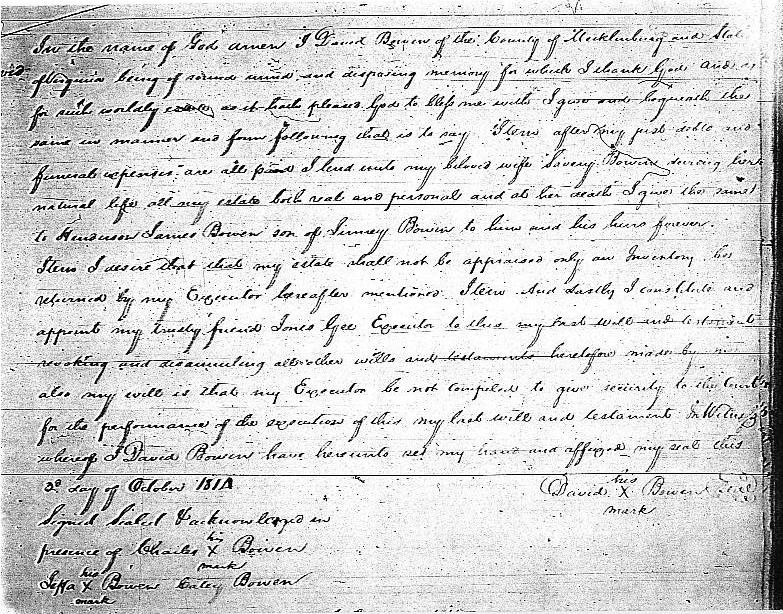 In the name of God amen I David Bowen of the County of Mecklenburg and State
of Virginia being of sound mind and disposing memory for which I thank God and as
for such worldly estate as it hath pleased God to bless me with I give and bequeath the
same in manner and form following that is to say Item after my just debts and
funeral expenses are all paid I lend unto my beloved wife Bowen during her
natural life all my estate both real and personal and at her death I give the same
to Henderson James Bowen son of Bowen to him and his heirs forever.
Item I desire that that my estate shall not be appraised only an Inventory be
returned by my Executor hereafter mentioned Item And lastly I constitute and
appoint my trusty friend Jones Gee Executor to this my last will and testament
revoking and disannulling all other wills and testaments heretofore made by me
also my will is that my Executor be not compelled to give security to the Court
for the performance of the execution of this my last will and testament In Witness
whereof I David Bowen have hereunto set my hand and affixed my seal this
day of October
David his X mark Bowen
Signed Sealed & acknowledged in
presence of Charles his X mark Bowen
his X mark Bowen Bowen